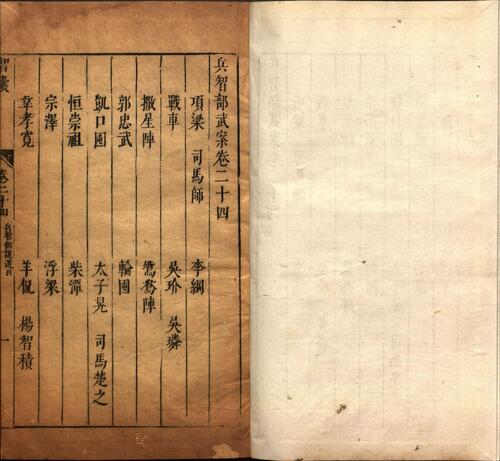 兵智部武案卷二十四
項梁 司馬師 李綱
戰車 吳玠 吳璘
撒星陣 鴛鴦陣
郭忠武 輪囤
凱口囤 太子晃 司馬楚之
恒崇祖 柴潭
宗澤 浮梁
韋孝寬 羊侃 楊智積
智囊 卷二十四 兵智部 一